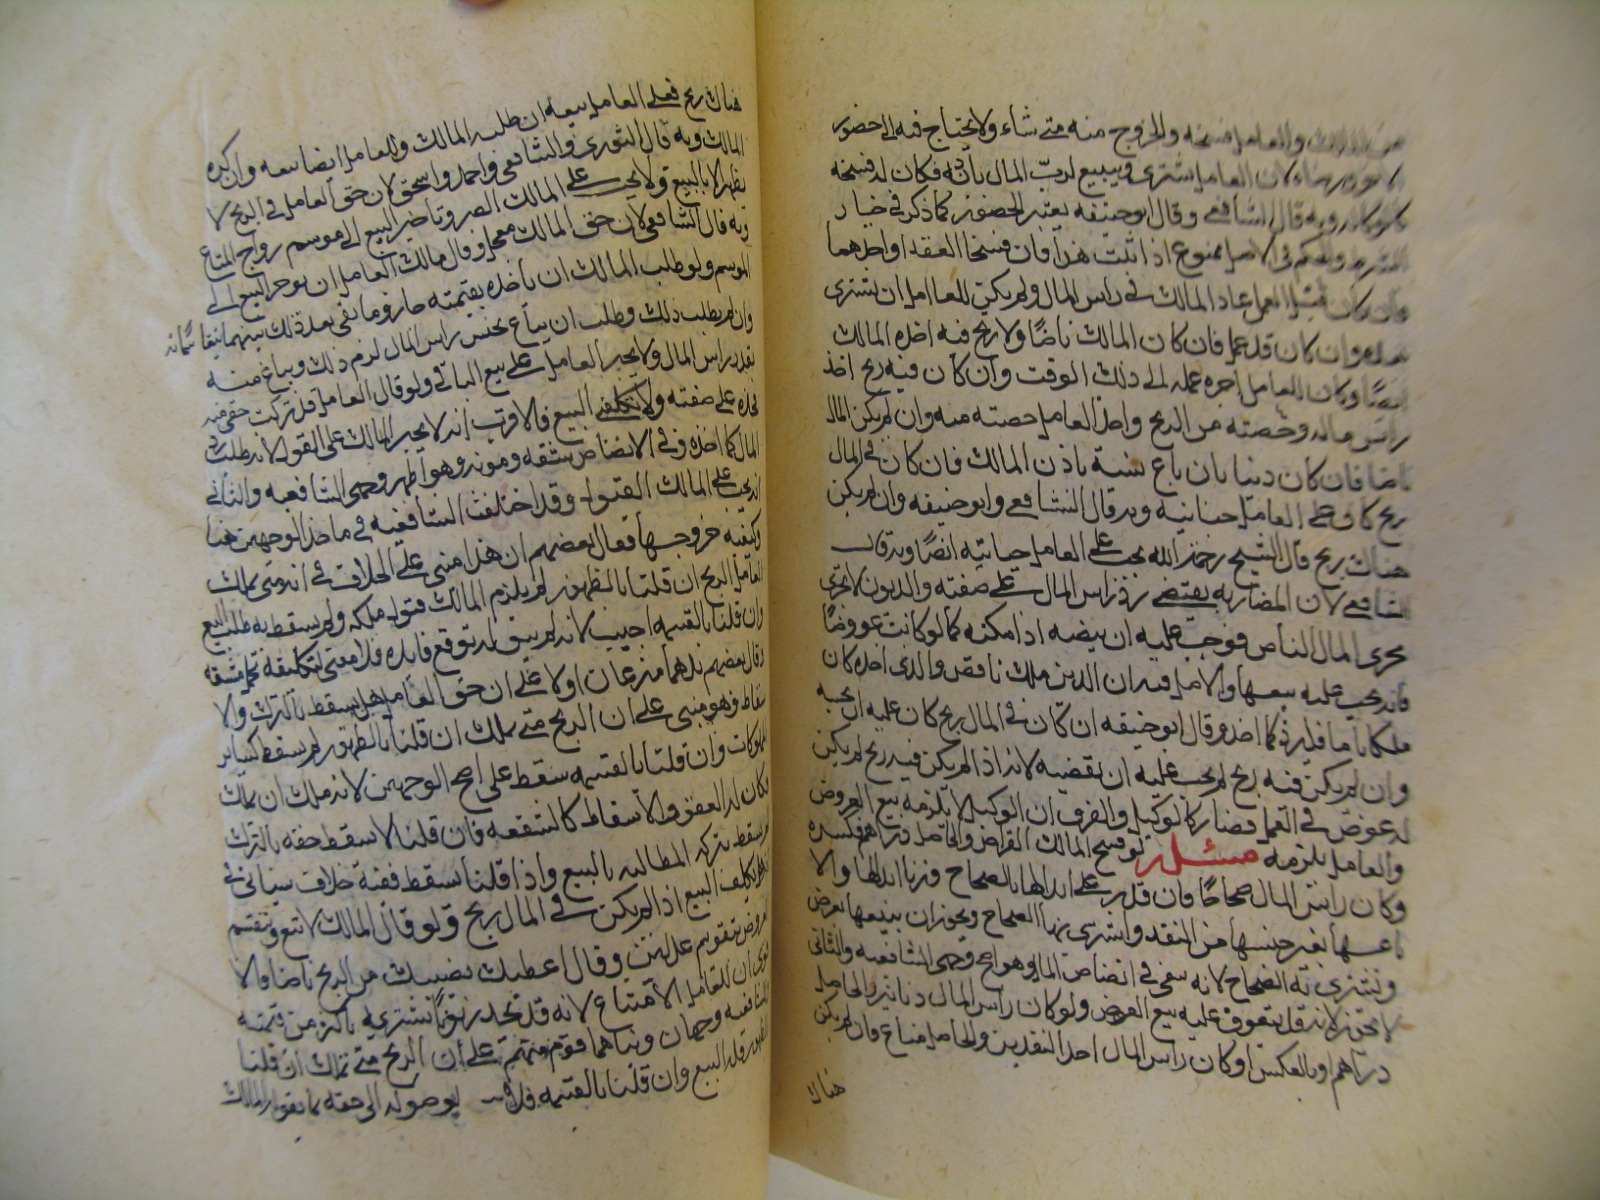 من المالك والعامل فسخه والخروج منه متى شاء ولا يحتاج فيه الى حضور
لان العامل يشترى ويبيع لرب المال باذنه فكان له فسخه
وبه قال الشافعي وقال ابو حنيفه يعتبر الحضور كما ذكر في خيار
الشرط والحكم في الاصل ممنوع اذا ثبت هذا فان فسخا العقد او احدهما
فان كان قبل العمل عاد المالك في راس المال ولم يكن للعامل ان يشترى
بعده وان كان قد عمل فان كان المالك ناضا ولا ربح فيه اخذه المالك
ايضا وكان للعامل اجره عمله الى ذلك الوقت وان كان فيه ربح اخذ
راس ماله وحصته من الربح واخذ العامل حصته منه وان لم يكن المال
ناضا فان كان دينا بان باع نسية باذن المالك فان كان في المال
ربح كان على العامل جبايته وبه قال الشافعي وابو حنيفه وان لم يكن
هناك ربح قال الشيخ رحمه الله يجب على العامل جبايته ايضا وبه قال
الشافعي لان المضاربه يقتضي رد راس المال على صفته والديون لا تجرى
مجرى المال الناض فوجب عليه ان ينضه اذا امكنه كما لو كانت عروضا
فانه يجب عليه بيعها والاصل فيه ان الدين ملك ناقص والذى اخذه كان
ملكا تاما فليرد كما اخذ وقال ابو حنيفه ان كان في المال ربح كان عليه ان يجبيه
وان لم يكن فيه ربح لم يجب عليه ان يقضيه لانه اذا لم يكن فيه ربح لم يكن
له عوض في العمل فصار كالوكيل والفرق ان الوكيل لا يلزمه بيع العروض
والعامل يلزمه مسئله لو فسخ المالك القراض والحاصل دراهم مكسره
وكان راس المال صحاحا فان قدر على ابدالها بالصحاح وزنا ابدلها والا
باعها بغير جنسها من النقد واشترى بها الصحاح ويجوز ان يبيعها بعرض
ويشترى به الصحاح لانه سعى في انضاض المال وهو احد وجهى الشافعيه والثانى
لا يجوز لانه قد يتعوق عليه بيع العرض ولو كان راس المال دنانير والحاصل
دراهم او بالعكس او كان راس المال احد النقدين والحاصل متاع فان لم يكن
هناك
هناك ربح فعلى العامل بيعه ان طلبه المالك وللعامل ايضا بيعه وان كره
المالك وبه قال الثورى والشافعى واحمد واسحق لان حق العامل في الربح لا
يظهر الا بالبيع ولا يجب على المالك الصبر وتاخير البيع الى موسم رواج المتاع
وبه قال الشافعي لان حق المالك معجل وقال مالك العامل ان يوخر البيع الى
الموسم ولو طلب المالك ان ياخذه بقيمته جاز وما بقى بعد ذلك بينهما
وان لم يطلب ذلك وطلب ان يباع بجنس راس المال لزم ذلك ويباع منه
بقدر راس المال ولا يجبر العامل على بيع الباقى ولو قال العامل قد تركت حقى منه
فخذه على صفته ولا تكلفنى البيع فالاقرب انه لا يجبر المالك على القبول لانه طلب رد
المال كما اخذه وفى الانضاض مشقه ومونه وهو اظهر وجهى الشافعيه والثانى
انه يجب على المالك القبول وقد اختلفت الشافعيه في ماخذ الوجهين هنا
وكيفيه خروجها فقال بعضهم ان هذا مبنى على الخلاف في انه متى يملك
العامل الربح ان قلنا بالظهور لم يلزم المالك قبول ملكه ولم يسقط به طلب البيع
وان قلنا بالقسمه اجيب لانه لم يبق له توقع فايده فلا معنى لتكليفه تحمل مشقه
وقال بعضهم بل هما مفرعان اولا على ان حق العامل هل يسقط بالترك والا
سقاط وهو مبنى على ان الربح متى يملك ان قلنا بالظهور لم يسقط كساير
المملوكات وان قلنا بالقسمه سقط على اصح الوجهين لانه ملك ان يملك
فكان له العفو والاسقاط كالشفعه فان قلنا لا يسقط حقه بالترك
لم يسقط بتركه المطالبه بالبيع واذا قلنا يسقط ففيه خلاف سياتى في
انه هل يكلف البيع اذا لم يكن في المال ربح ولو قال المالك لا تبع ونقتسم
العروض بتقويم عدلين وقال اعطيك نصيبك من الربح ناضا فالا
قوى ان للعامل الامتناع لانه قد يجد زبونا يشتريه باكثر من قيمته
وللشافعيه وجهان وبناهما قوم منهم على ان الربح متى يملك ان قلنا
بالظهور فله البيع وان قلنا بالقسمه فلا لوصوله الى حقه بما يقوله المالك